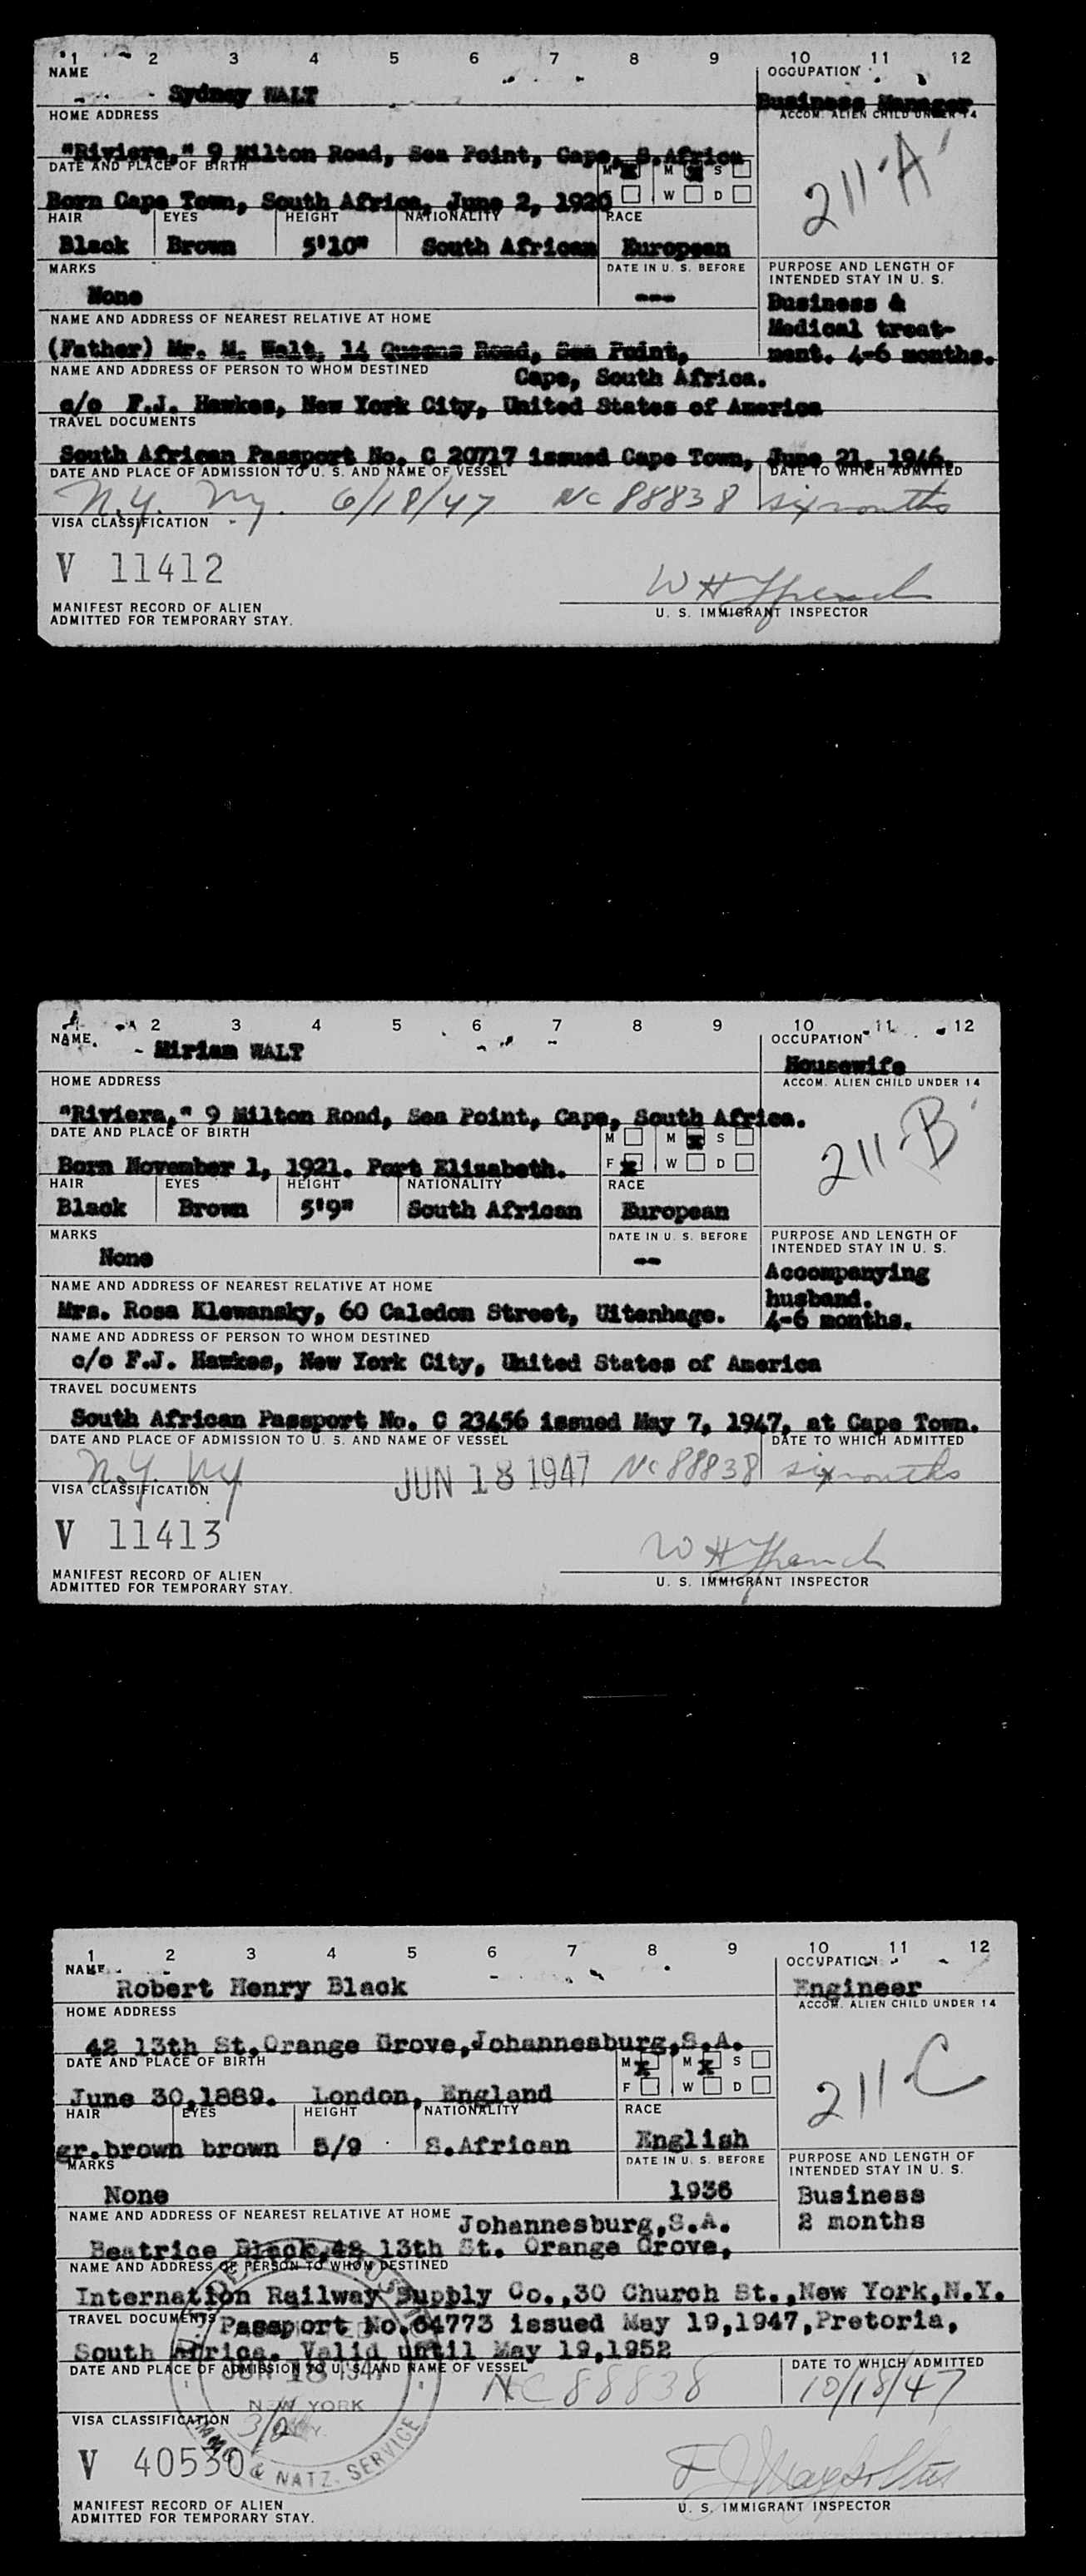 1 2 3 4 5 6 7 8 9 10 11 12
NAME
OCCUPATION
Sydney WALT
Business Manager
HOME ADDRESS
ACCOM. ALIEN CHILD UNDER 14
"Riviera," 9 Milton Road, Sea Point, Cape, S.Africa
211-A
DATE AND PLACE OF BIRTH
M M S
Born Cape Town, South Africa, June 2, 1920
W D
HAIR EYES HEIGHT NATIONALITY RACE
Black Brown 5'10" South African European
MARKS
DATE IN U. S. BEFORE
PURPOSE AND LENGTH OF
INTENDED STAY IN U. S.
None
---
Business &
Medical treat-
ment. 4-6 months.
NAME AND ADDRESS OF NEAREST RELATIVE AT HOME
(Father) Mr. M. Walt, 14 Queens Road, Sea Point,
Cape, South Africa.
NAME AND ADDRESS OF PERSON TO WHOM DESTINED
c/o F.J. Hawkes, New York City, United States of America
TRAVEL DOCUMENTS
South African Passport No. C 20717 issued Cape Town, June 21, 1946.
DATE AND PLACE OF ADMISSION TO U. S. AND NAME OF VESSEL
DATE TO WHICH ADMITTED
N.Y. N.Y. 6/18/47 NC 88838 six months
VISA CLASSIFICATION
V 11412
W H French
MANIFEST RECORD OF ALIEN
ADMITTED FOR TEMPORARY STAY.
U. S. IMMIGRANT INSPECTOR
2 3 4 5 6 7 8 9 10 11 12
NAME
OCCUPATION
Miriam WALT
Housewife
HOME ADDRESS
ACCOM. ALIEN CHILD UNDER 14
"Riviera," 9 Milton Road, Sea Point, Cape, South Africa.
211-B
DATE AND PLACE OF BIRTH
M M S
Born November 1, 1921. Port Elizabeth.
F W D
HAIR EYES HEIGHT NATIONALITY RACE
Black Brown 5'9" South African European
MARKS
DATE IN U. S. BEFORE
PURPOSE AND LENGTH OF
INTENDED STAY IN U. S.
None
--
Accompanying
husband.
4-6 months.
NAME AND ADDRESS OF NEAREST RELATIVE AT HOME
Mrs. Rosa Klewansky, 60 Caledon Street, Uitenhage.
NAME AND ADDRESS OF PERSON TO WHOM DESTINED
c/o F.J. Hawkes, New York City, United States of America
TRAVEL DOCUMENTS
South African Passport No. C 23456 issued May 7, 1947, at Cape Town.
DATE AND PLACE OF ADMISSION TO U. S. AND NAME OF VESSEL
DATE TO WHICH ADMITTED
N.Y. NY JUN 18 1947 NC 88838 six months
VISA CLASSIFICATION
V 11413
W H French
MANIFEST RECORD OF ALIEN
ADMITTED FOR TEMPORARY STAY.
U. S. IMMIGRANT INSPECTOR
1 2 3 4 5 6 7 8 9 10 11 12
NAME
OCCUPATION
Robert Henry Black
Engineer
HOME ADDRESS
ACCOM. ALIEN CHILD UNDER 14
42 13th St.Orange Grove,Johannesburg,S.A.
211-C
DATE AND PLACE OF BIRTH
M M S
June 30,1889. London, England
F W D
HAIR EYES HEIGHT NATIONALITY RACE
gr.brown brown 5/9 S.African English
MARKS
DATE IN U. S. BEFORE
PURPOSE AND LENGTH OF
INTENDED STAY IN U. S.
None
1936
Business
2 months
NAME AND ADDRESS OF NEAREST RELATIVE AT HOME
Johannesburg,S.A.
Beatrice Black,42 13th St. Orange Grove,
NAME AND ADDRESS OF PERSON TO WHOM DESTINED
Internation Railway Supply Co.,30 Church St.,New York,N.Y.
TRAVEL DOCUMENTS
Passport No.64773 issued May 19,1947,Pretoria,
South Africa. Valid until May 19,1952
DATE AND PLACE OF ADMISSION TO U. S. AND NAME OF VESSEL
DATE TO WHICH ADMITTED
JUN 18 1947
NC 88838 10/18/47
NEW YORK
N.Y.
VISA CLASSIFICATION
3/2
V 40530
& NATZ. SERVICE
MANIFEST RECORD OF ALIEN
ADMITTED FOR TEMPORARY STAY.
U. S. IMMIGRANT INSPECTOR